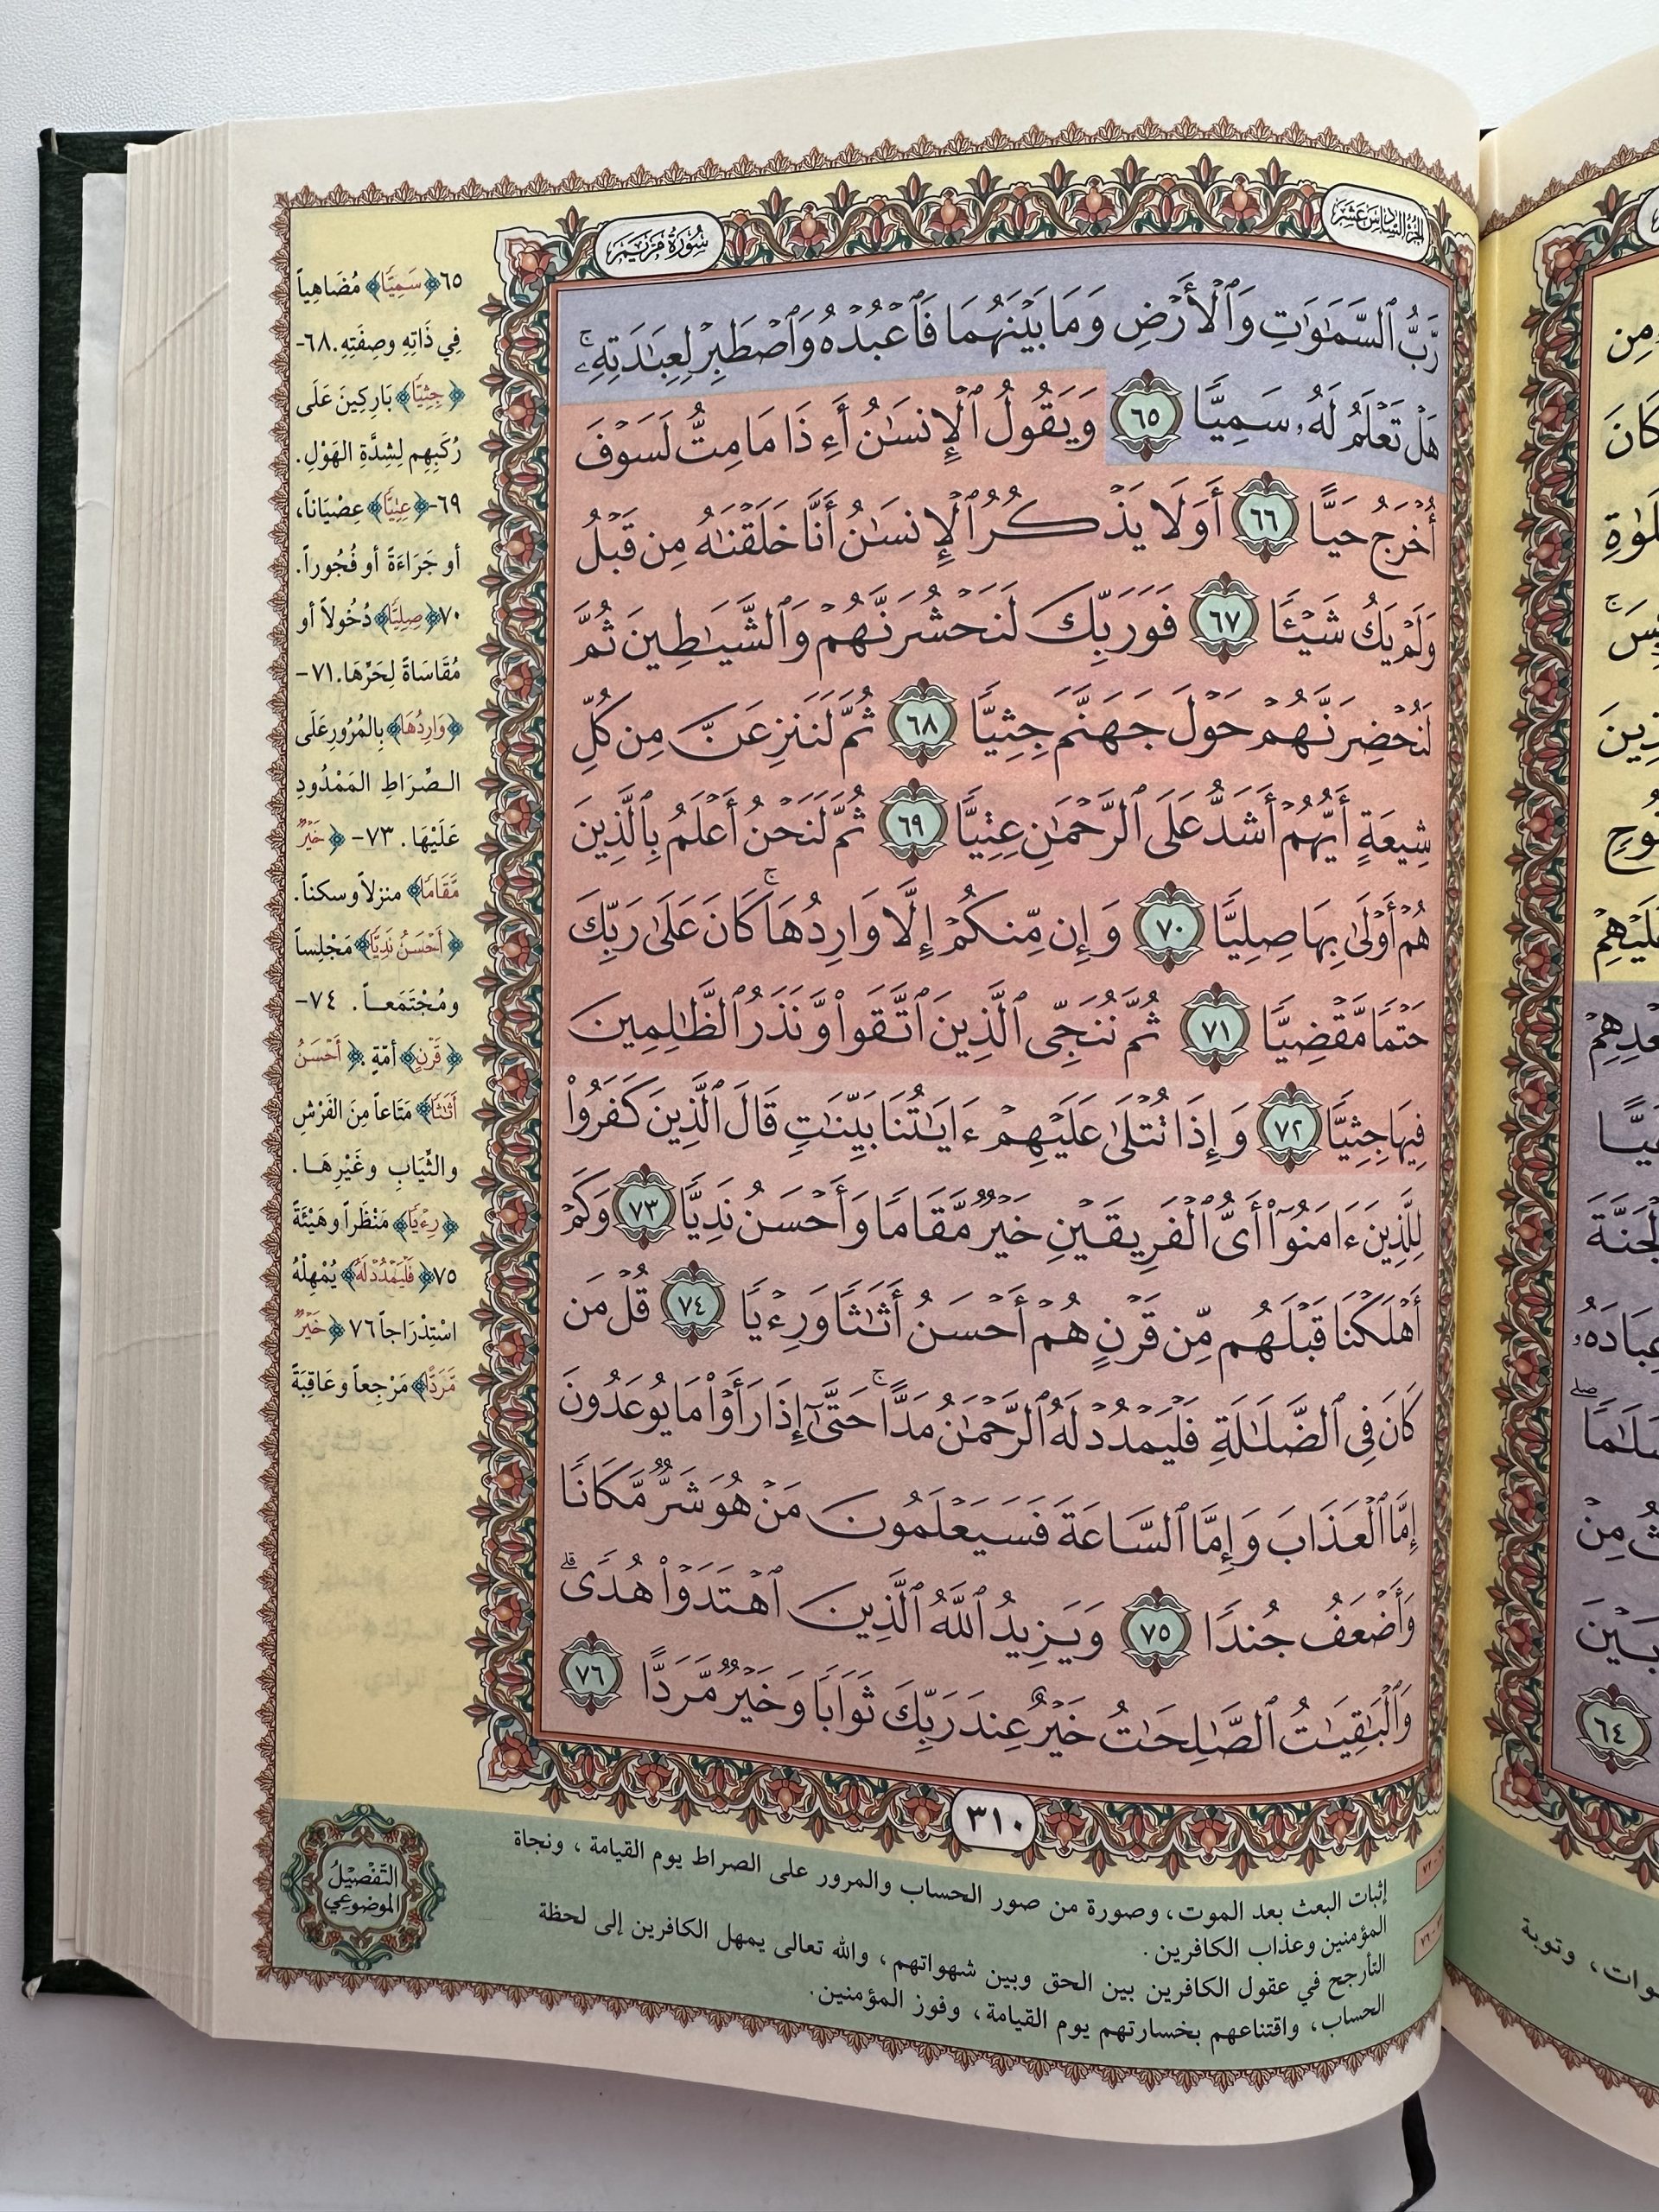 الجزء السادس عشر
سورة مريم
رَّبُّ ٱلسَّمَـٰوَٰتِ وَٱلْأَرْضِ وَمَا بَيْنَهُمَا فَٱعْبُدْهُ وَٱصْطَبِرْ لِعِبَـٰدَتِهِۦ ۚ
هَلْ تَعْلَمُ لَهُۥ سَمِيًّا ٦٥ وَيَقُولُ ٱلْإِنسَـٰنُ أَءِذَا مَا مِتُّ لَسَوْفَ
أُخْرَجُ حَيًّا ٦٦ أَوَلَا يَذْكُرُ ٱلْإِنسَـٰنُ أَنَّا خَلَقْنَـٰهُ مِن قَبْلُ
وَلَمْ يَكُ شَيْـًٔا ٦٧ فَوَرَبِّكَ لَنَحْشُرَنَّهُمْ وَٱلشَّيَـٰطِينَ ثُمَّ
لَنُحْضِرَنَّهُمْ حَوْلَ جَهَنَّمَ جِثِيًّا ٦٨ ثُمَّ لَنَنزِعَنَّ مِن كُلِّ
شِيعَةٍ أَيُّهُمْ أَشَدُّ عَلَى ٱلرَّحْمَـٰنِ عِتِيًّا ٦٩ ثُمَّ لَنَحْنُ أَعْلَمُ بِٱلَّذِينَ
هُمْ أَوْلَىٰ بِهَا صِلِيًّا ٧٠ وَإِن مِّنكُمْ إِلَّا وَارِدُهَا ۚ كَانَ عَلَىٰ رَبِّكَ
حَتْمًا مَّقْضِيًّا ٧١ ثُمَّ نُنَجِّى ٱلَّذِينَ ٱتَّقَوا۟ وَّنَذَرُ ٱلظَّـٰلِمِينَ
فِيهَا جِثِيًّا ٧٢ وَإِذَا تُتْلَىٰ عَلَيْهِمْ ءَايَـٰتُنَا بَيِّنَـٰتٍ قَالَ ٱلَّذِينَ كَفَرُوا۟
لِلَّذِينَ ءَامَنُوٓا۟ أَىُّ ٱلْفَرِيقَيْنِ خَيْرٌ مَّقَامًا وَأَحْسَنُ نَدِيًّا ٧٣ وَكَمْ
أَهْلَكْنَا قَبْلَهُم مِّن قَرْنٍ هُمْ أَحْسَنُ أَثَـٰثًا وَرِءْيًا ٧٤ قُلْ مَن
كَانَ فِى ٱلضَّلَـٰلَةِ فَلْيَمْدُدْ لَهُ ٱلرَّحْمَـٰنُ مَدًّا ۚ حَتَّىٰٓ إِذَا رَأَوْا۟ مَا يُوعَدُونَ
إِمَّا ٱلْعَذَابَ وَإِمَّا ٱلسَّاعَةَ فَسَيَعْلَمُونَ مَنْ هُوَ شَرٌّ مَّكَانًا
وَأَضْعَفُ جُندًا ٧٥ وَيَزِيدُ ٱللَّهُ ٱلَّذِينَ ٱهْتَدَوْا۟ هُدًى ۗ
وَٱلْبَـٰقِيَـٰتُ ٱلصَّـٰلِحَـٰتُ خَيْرٌ عِندَ رَبِّكَ ثَوَابًا وَخَيْرٌ مَّرَدًّا ٧٦
٣١٠
٦٥﴿سَمِيًّا﴾ مُضَاهِياً
فِي ذَاتِهِ وصِفَتِهِ. ٦٨-
﴿جِثِيًّا﴾ بَارِكِينَ عَلَى
رُكَبِهِم لِشِدَّةِ الهَوْلِ.
٦٩-﴿عِتِيًّا﴾ عِصْيَاناً،
أو جَرَاءَةً أو فُجُوراً.
٧٠﴿صِلِيًّا﴾ دُخُولاً أو
مُقَاسَاةً لِحَرِّهَا. ٧١-
﴿وَارِدُهَا﴾ بِالمُرُورِ عَلَى
الصِّرَاطِ المَمْدُودِ
عَلَيْهَا. ٧٣- ﴿خَيْرٌ
مَّقَامًا﴾ منزلاً وسكناً.
﴿أَحْسَنُ نَدِيًّا﴾ مَجْلِساً
ومُجْتَمَعاً. ٧٤-
﴿قَرْنٍ﴾ أمّةٍ. ﴿أَحْسَنُ
أَثَـٰثًا﴾ مَتَاعاً مِنَ الفَرْشِ
والثِّيَابِ وغَيْرِهَا.
﴿رِءْيًا﴾ مَنْظَراً وهَيْئَةً
٧٥﴿فَلْيَمْدُدْ لَهُ﴾ يُمْهِلْهُ
اسْتِدْرَاجاً ٧٦ ﴿خَيْرٌ
مَّرَدًّا﴾ مَرْجِعاً وعَاقِبَةً
التَّفْصِيْلُ
الموضوعي
إثبات البعث بعد الموت، وصورة من صور الحساب والمرور على الصراط يوم القيامة، ونجاة
المؤمنين وعذاب الكافرين.
التأرجح في عقول الكافرين بين الحق وبين شهواتهم، والله تعالى يمهل الكافرين إلى لحظة
الحساب، واقتناعهم بخسارتهم يوم القيامة، وفوز المؤمنين.